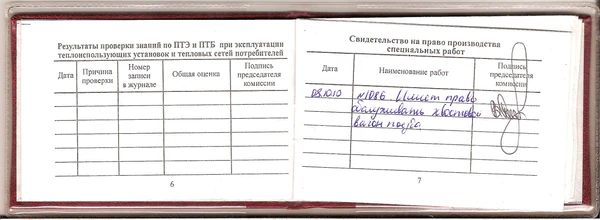 Результаты проверки знаний по ПТЭ и ПТБ при эксплуатации
теплоиспользующих установок и тепловых сетей потребителей
Дата
Причина
проверки
Номер
записи
в журнале
Общая оценка
Подпись
председателя
комиссии
6
Свидетельство на право производства
специальных работ
Дата
Наименование работ
Подпись
председателя
комиссии
08.10.10
№1086. Имеет право
обслуживать хвостовой
вагон поезда
7